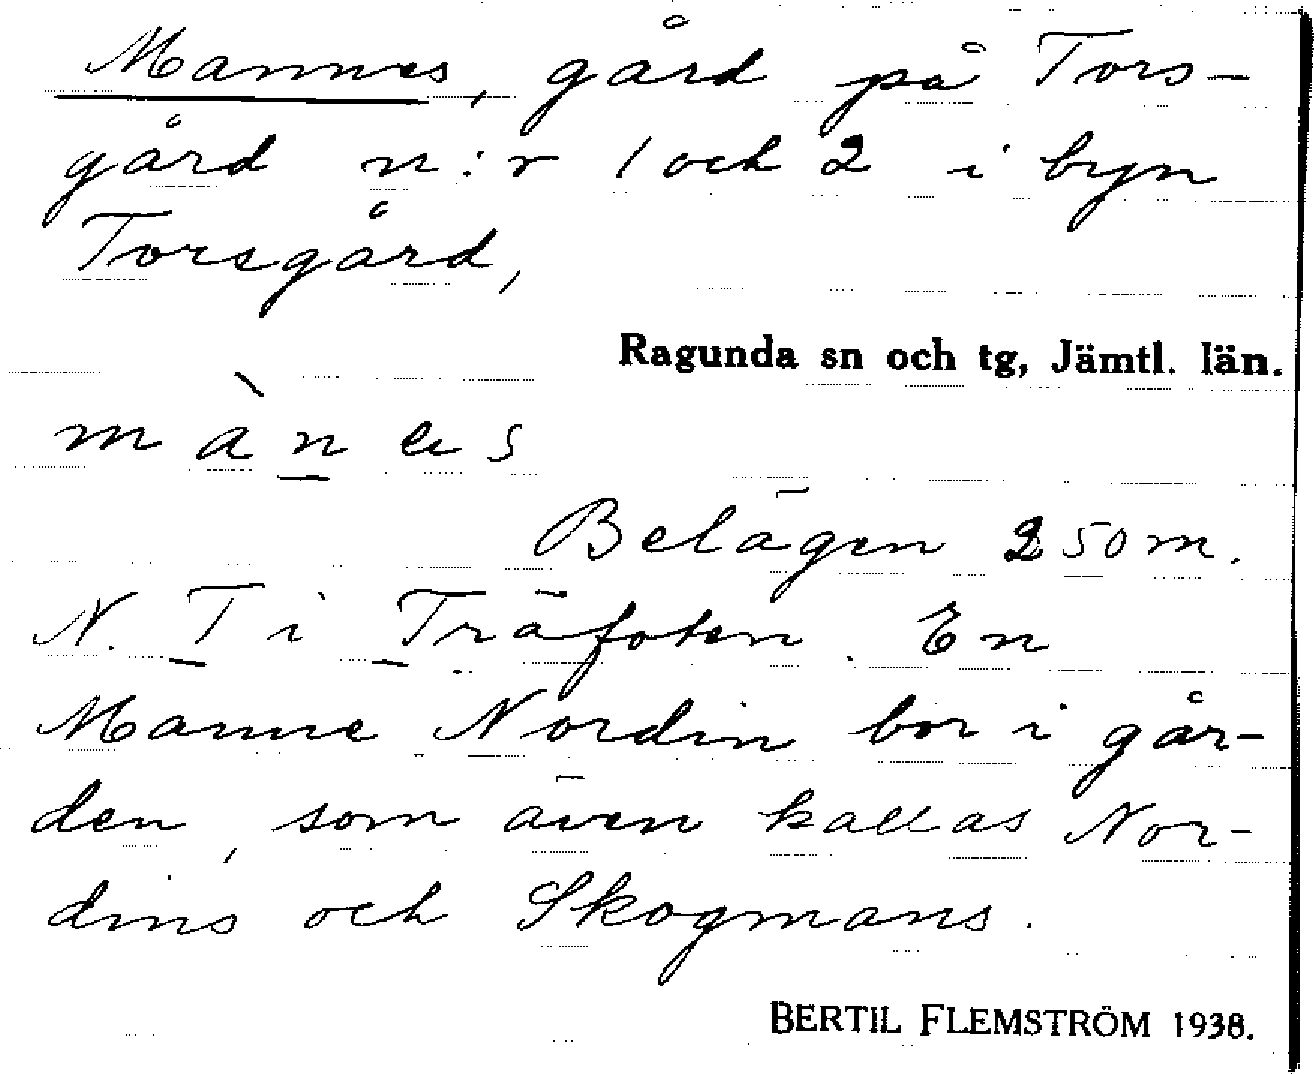 Mannes, gård på Tors-
gård n:r 1 och 2 i byn
Torsgård,
Ragunda sn och tg, Jämtl. län.
m à n es
Belägen 250 m.
N. T i Träfoten. En
Manne Nordin bor i går-
den, som även kallas Nor-
dins och Skogmans.
BERTIL FLEMSTRÖM 1938.